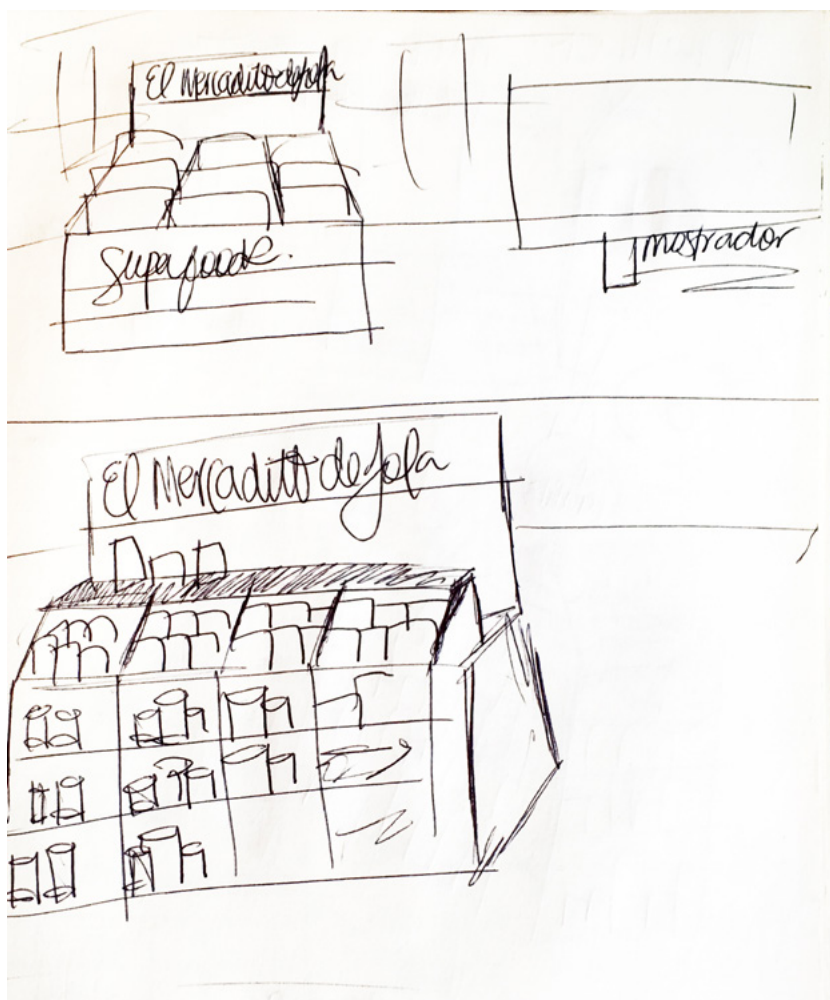 El Mercadito de Jola
Supafoods.
mostrador
El Mercadito de Jola